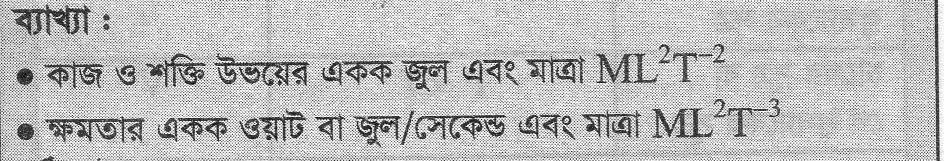 ব্যাখ্যা :
● কাজ ও শক্তি উভয়ের একক জুল এবং মাত্রা ML²T⁻²
● ক্ষমতার একক ওয়াট বা জুল/সেকেন্ড এবং মাত্রা ML²T⁻³